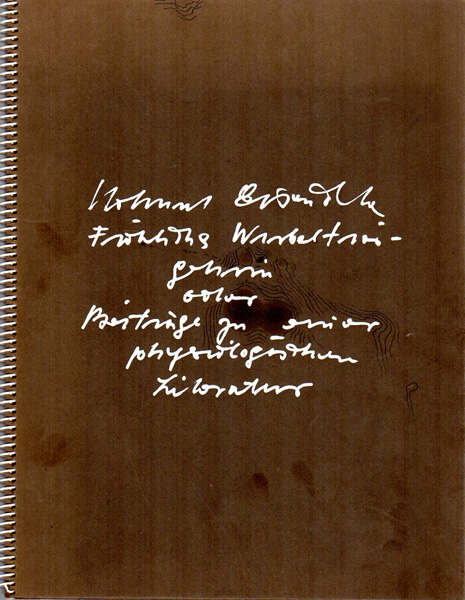 Helmut Eisendle
Fröhliches Wirbeltier-
gehirn
oder
Beiträge zu einer
physiologischen
Literatur